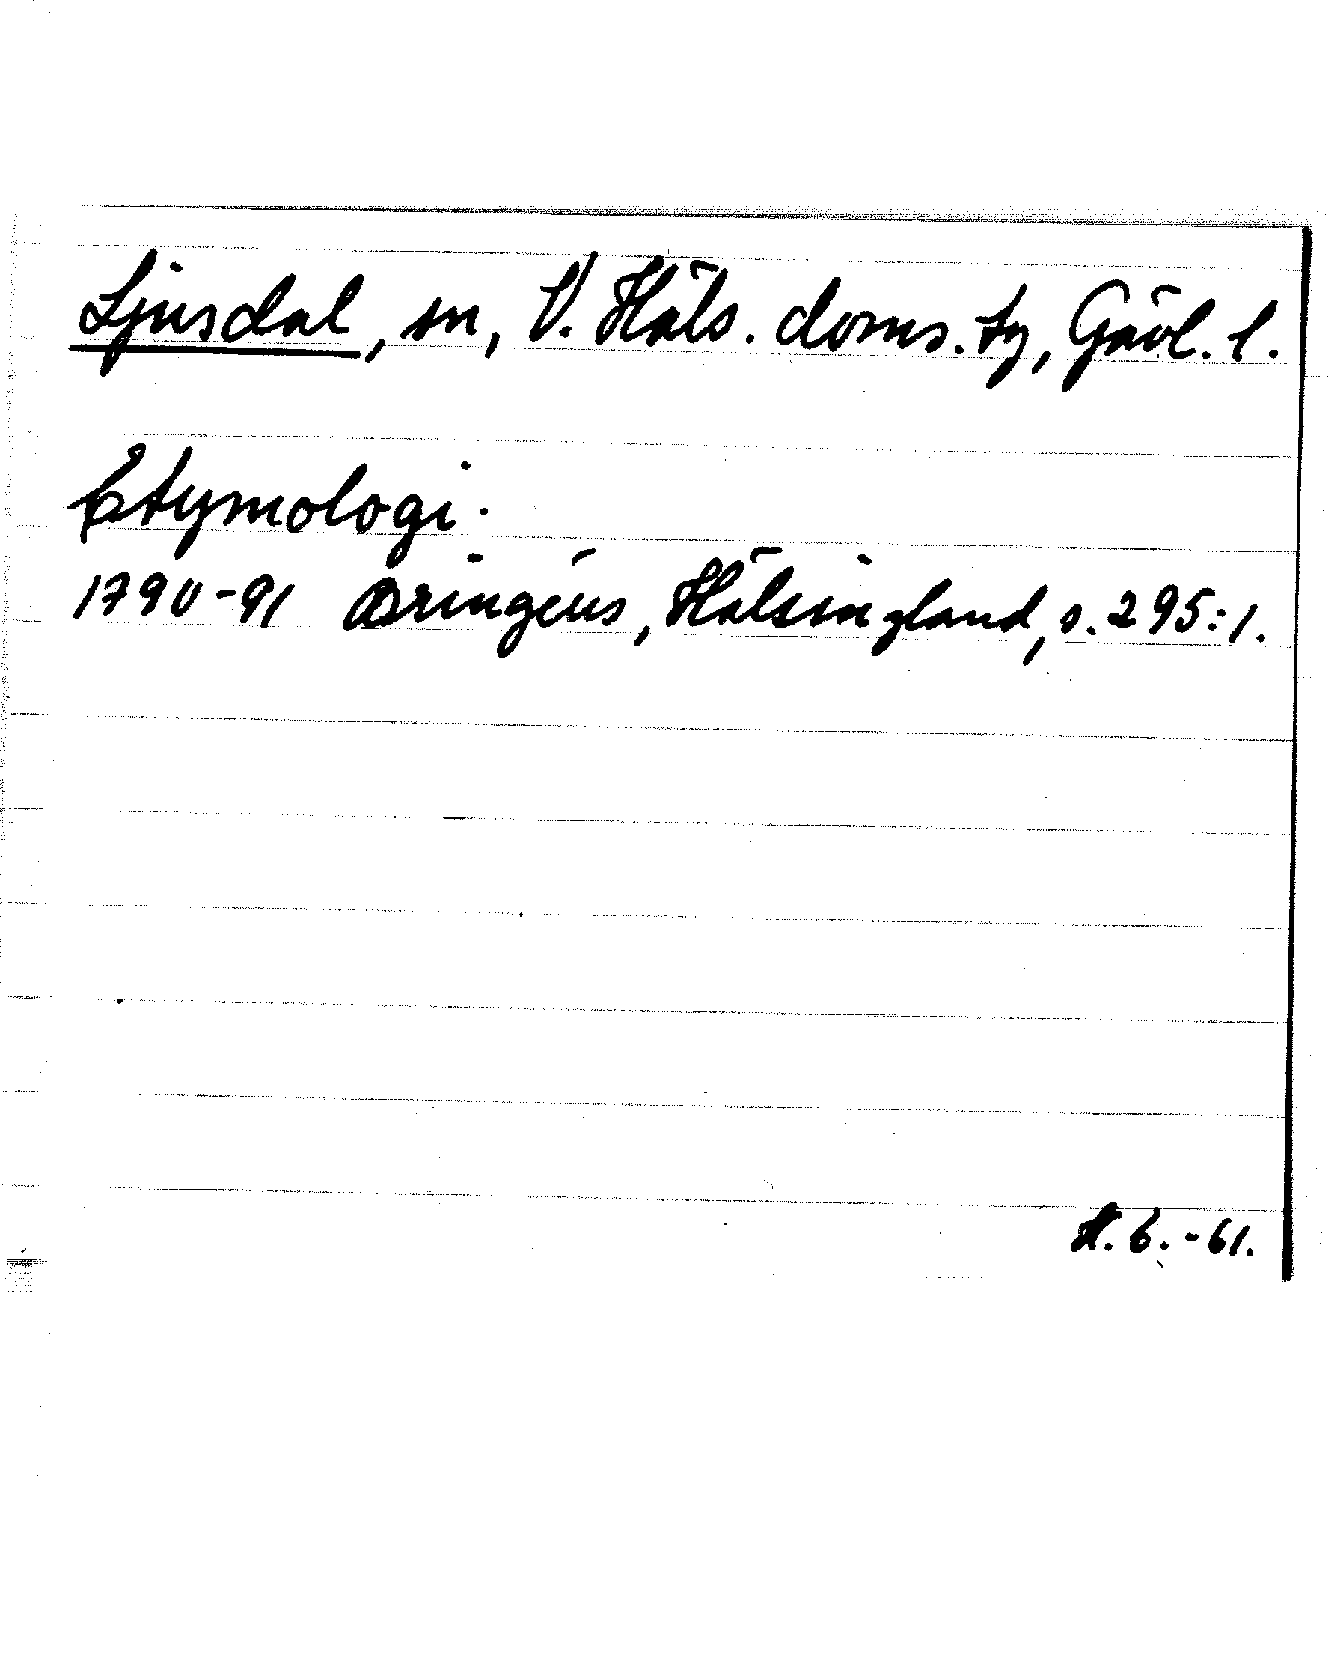 Ljusdal, sn, V. Häls. doms. tg, Gävl. l.
Etymologi.
1790-91 Bringéus, Hälsingland, s. 295:1.
H. B. -61.